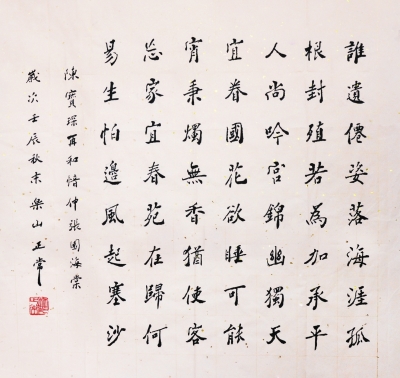 誰遺僊姿落海涯孤
根封殖若為加承平
人尚吟宮錦幽獨天
宜眷國花欲睡可能
宵秉燭無香猶使客
忘家宜春苑在歸何
易生怕邊風起塞沙
陳寶琛再和愔仲張園海棠
歲次壬辰秋末樂山正常